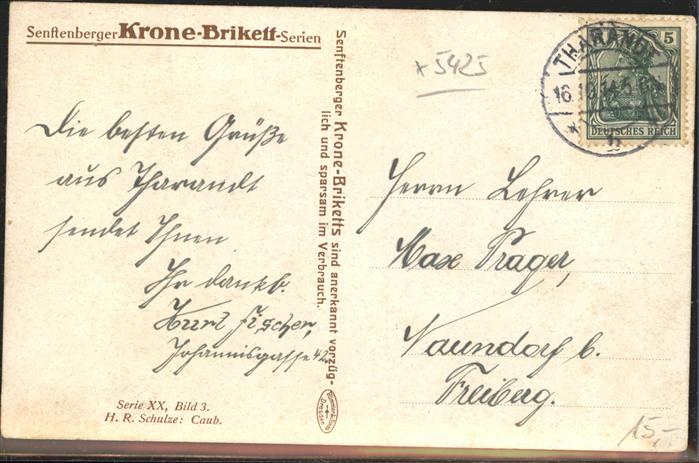 Senftenberger Krone-Brikett-Serien
Die besten Grüße
aus Tharandt
sendet Ihnen
Ihr dankb.
Kurt Fischer,
Johannisgasse 42.
Serie XX, Bild 3.
H. R. Schulze: Caub.
Senftenberger Krone-Briketts sind anerkannt vorzüg-
lich und sparsam im Verbrauch.
+5425
THARANDT
16.10.14.
b
5
DEUTSCHES REICH
Herrn Lehrer
Max Prager,
Naundorf b.
Freiberg.
15,-